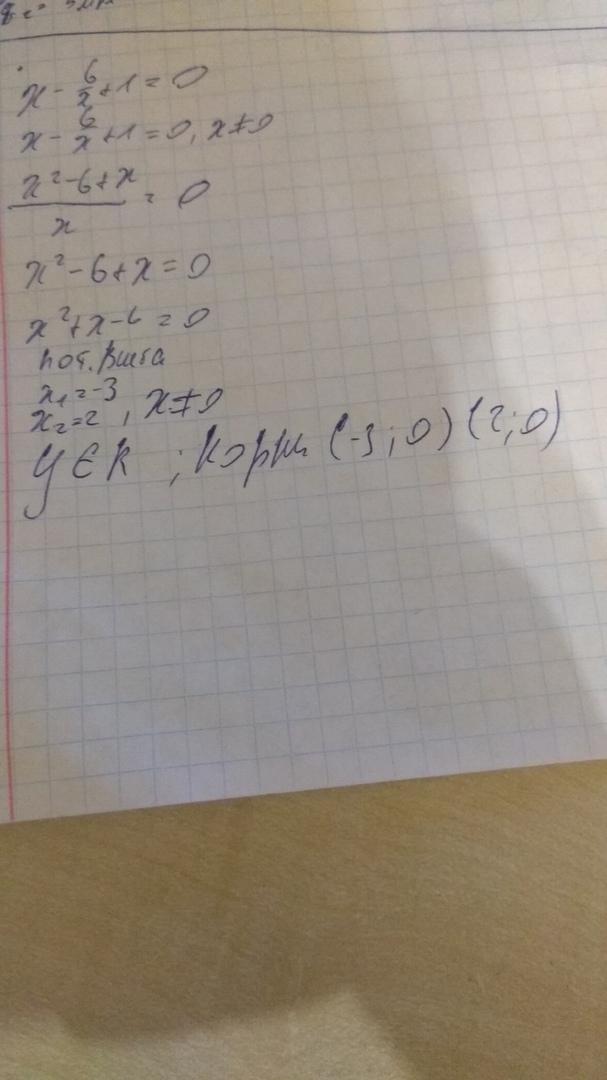 x - 6/x + 1 = 0
x - 6/x + 1 = 0, x ≠ 0
(x² - 6 + x)/x = 0
x² - 6 + x = 0
x² + x - 6 = 0
по т. Виета
x₁ = -3
x₂ = 2 , x ≠ 0
y ∈ R ; Корни (-3; 0) (2; 0)